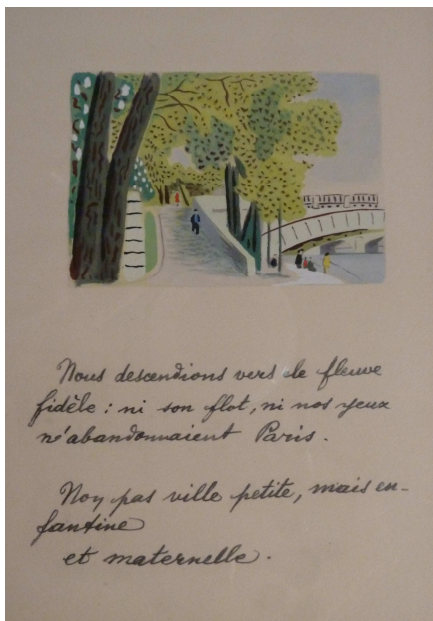 Nous descendions vers le fleuve
fidèle : ni son flot, ni nos yeux
n'abandonnaient Paris.
Noy pas ville petite, mais en-
fantine
et maternelle.